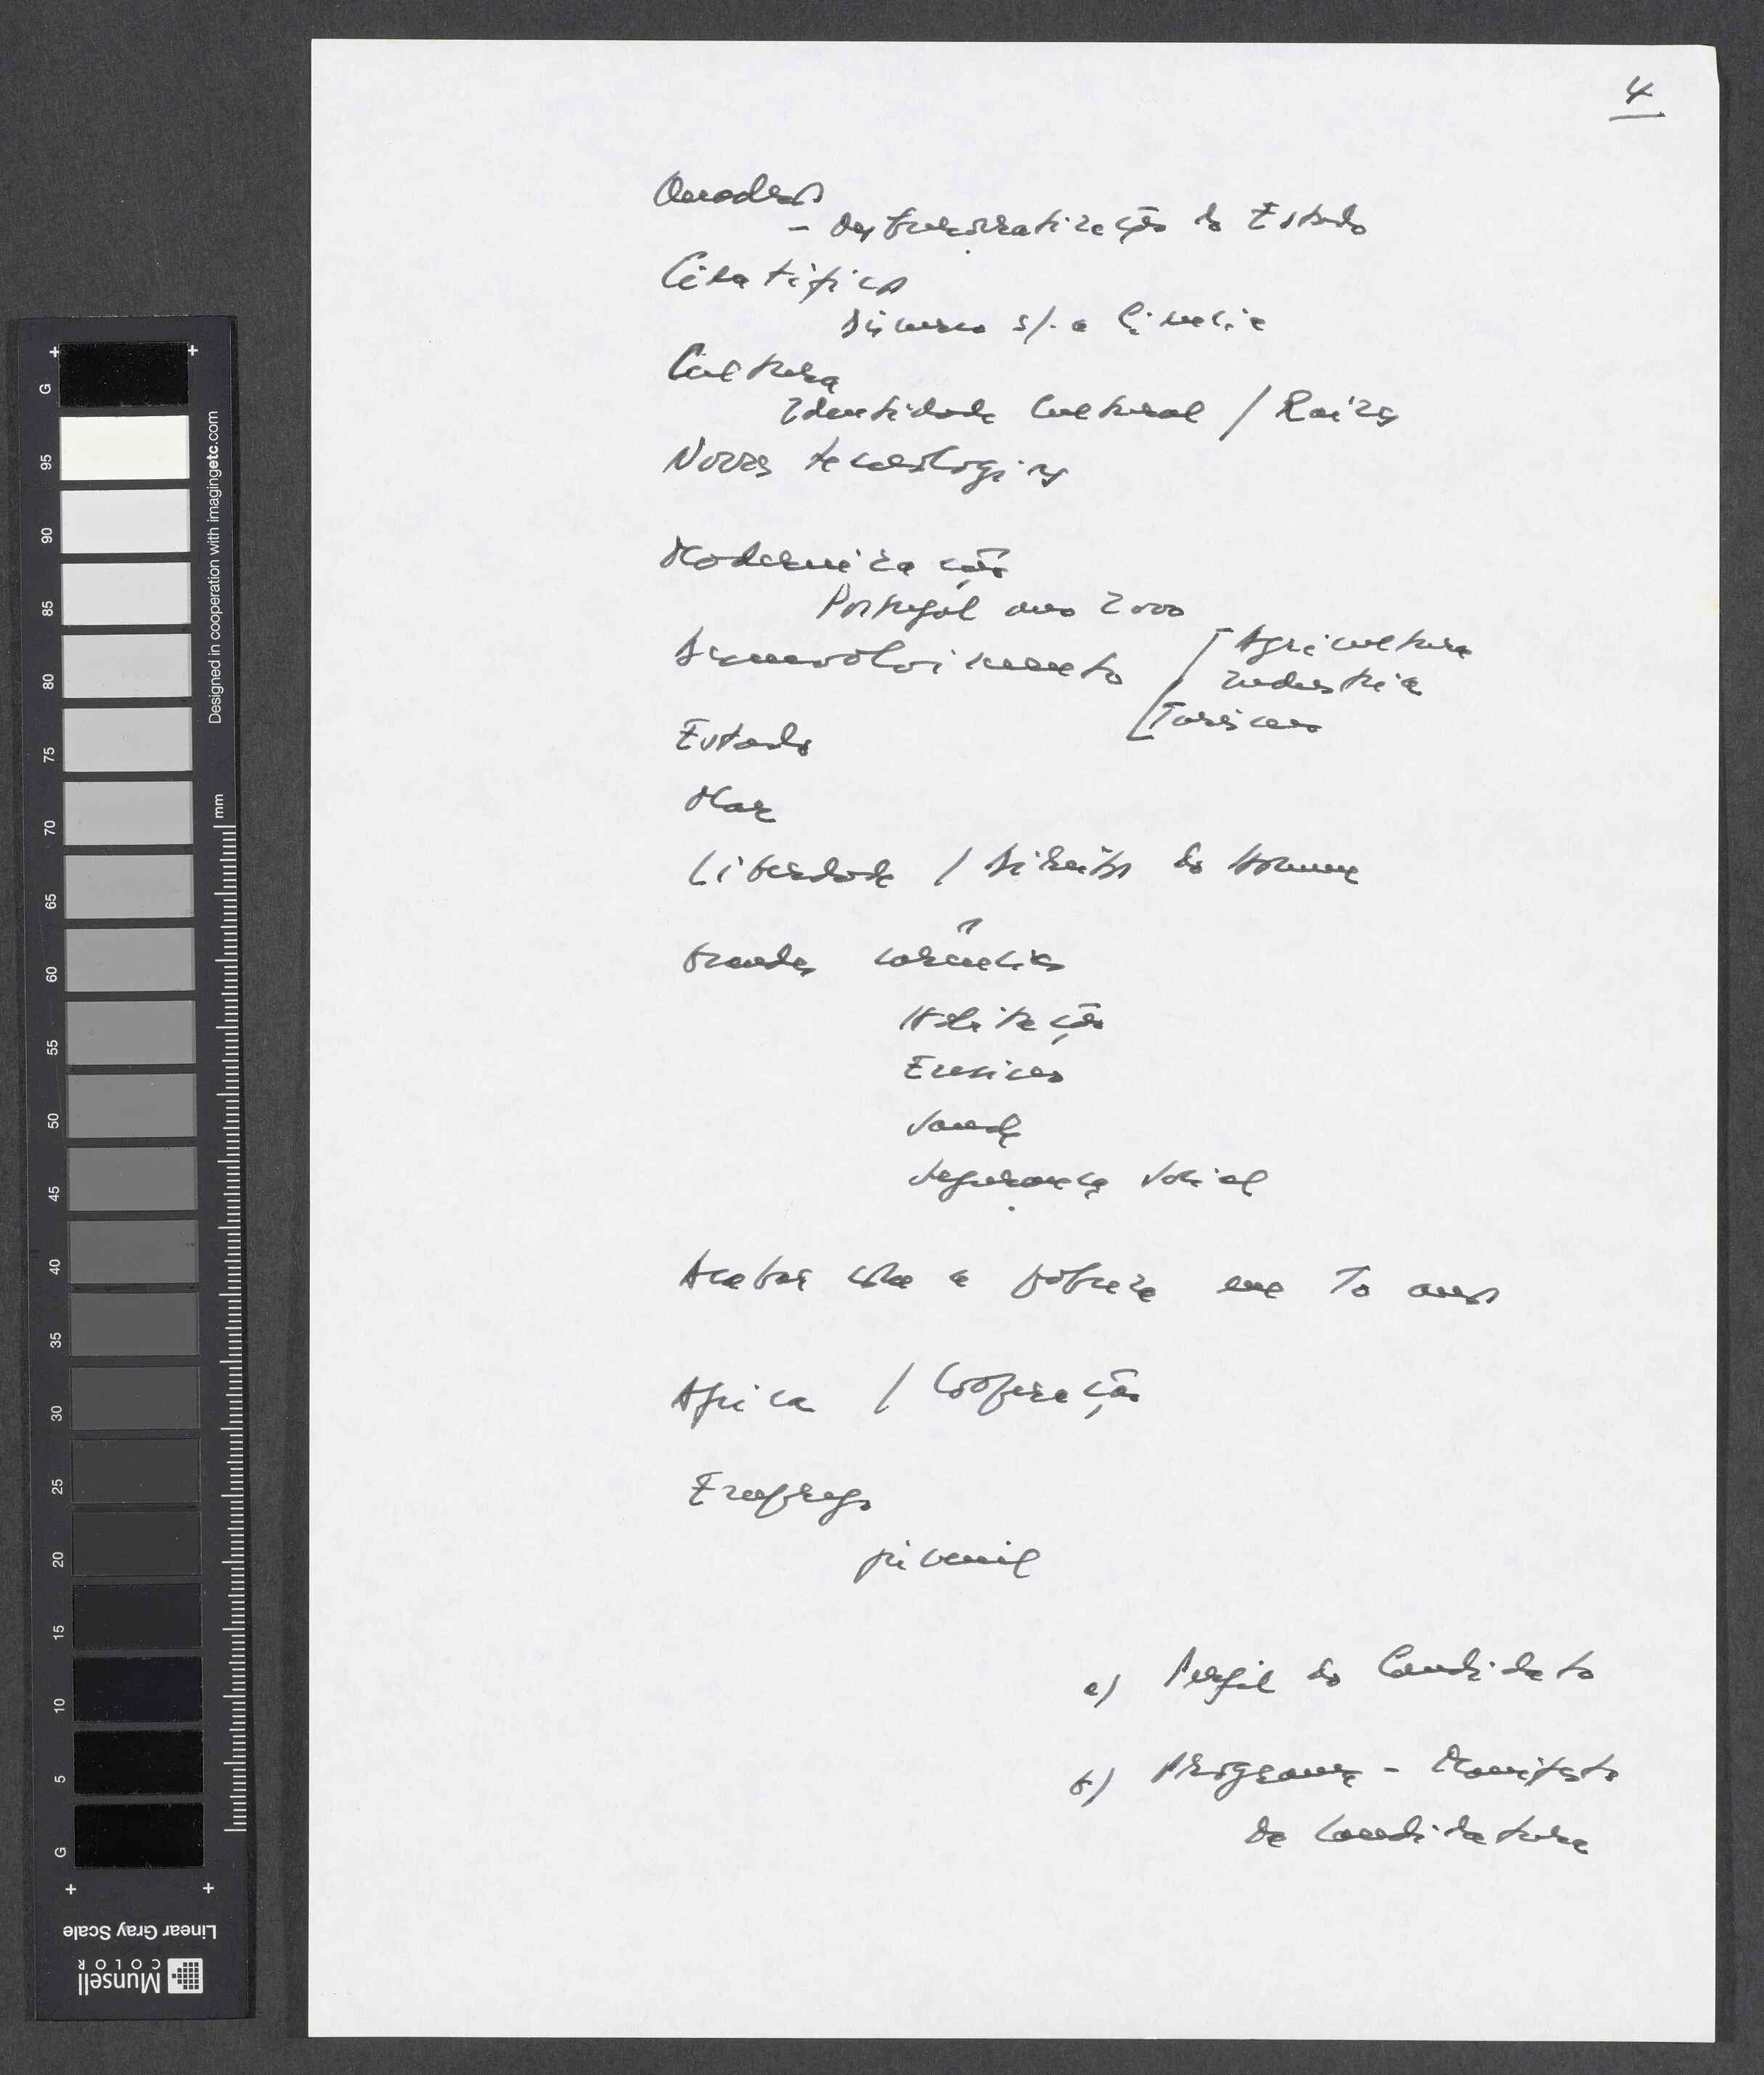 4
Quadros
- desburocratização do Estado
Científica
discurso s/. a Ciência
Cultura
Identidade Cultural / Raízes
Novas tecnologias
Modernização
Portugal ano 2000
Desenvolvimento
Agricultura
Industria
Turismo
Estado
Mar
Liberdade / Direitos do Homem
Grandes carências
Habitação
Ensino
Saude
Segurança Social
Acabar com a pobreza em 10 anos
Africa / Cooperação
Emprego
juvenil
a) Perfil do Candidato
b) Programa - Manifesto
da Candidatura
G
95
90
85
80
75
70
65
60
55
50
45
40
35
30
25
20
15
10
5
G
mm
Designed in cooperation with imagingetc.com
Linear Gray Scale
Munsell
COLOR